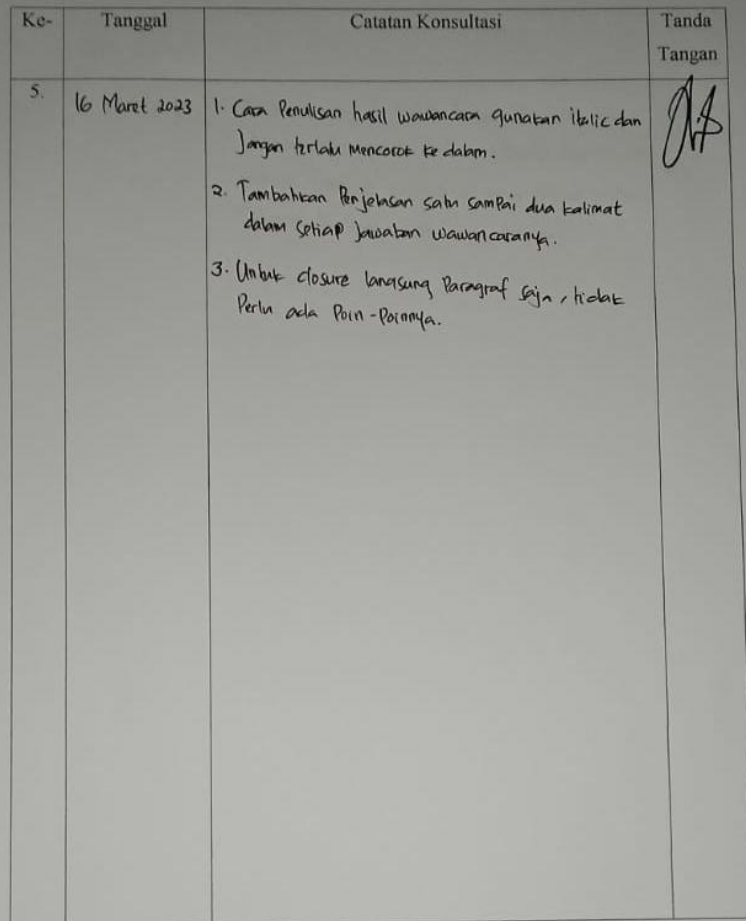 Ke- Tanggal Catatan Konsultasi Tanda
Tangan
5. 16 Maret 2023 1. Cara Penulisan hasil wawancara gunakan italic dan
Jangan terlalu mencorok ke dalam.
2. Tambahkan Penjelasan satu sampai dua kalimat
dalam setiap jawaban wawancaranya.
3. Untuk closure langsung Paragraf saja, tidak
Perlu ada Poin-Poinnya.